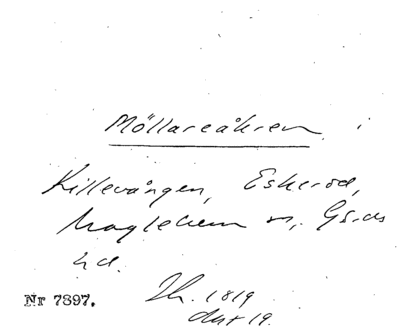 Möllareåkren i
Killevången, Eskerod,
Maglehem sn, Gs.as
hd.
Nr 7897. Th. 1819
akt 19.